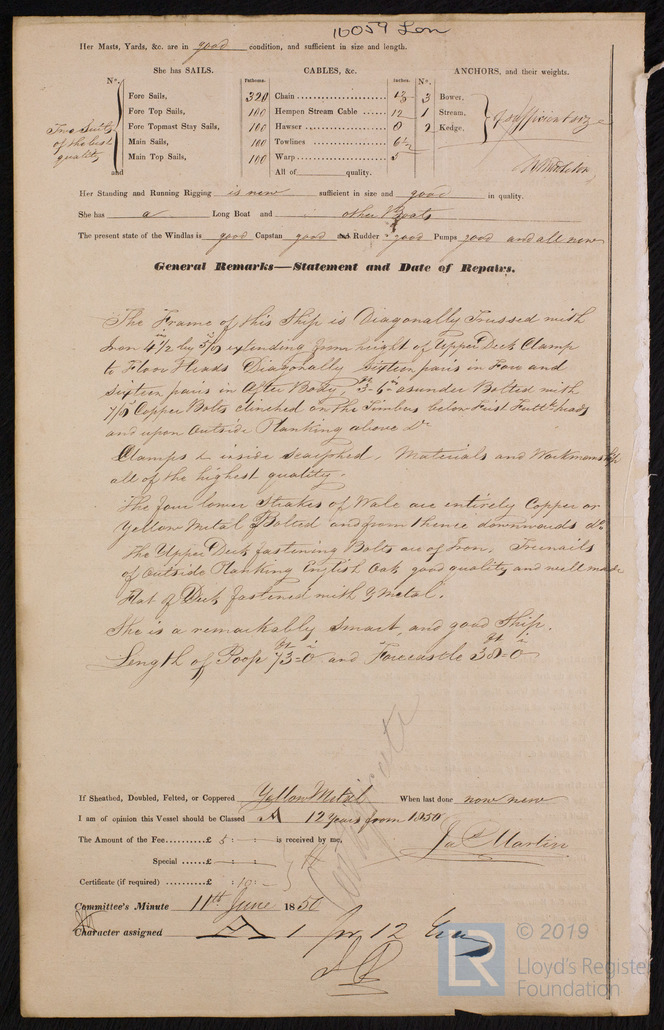 16059 Lon
Her Masts, Yards, &c. are in good condition, and sufficient in size and length.
She has SAILS. CABLES, &c. ANCHORS, and their weights.
N°. Fathoms. Inches. N°.
Fore Sails, 320 Chain 1 3 Bower,
Fore Top Sails, 100 Hempen Stream Cable 12 1 Stream,
Fore Topmast Stay Sails, 100 Hawser 8 2 Kedge,
Main Sails, 100 Towlines 6½
Main Top Sails, 100 Warp 5
and All of quality.
Two Suits
of the best
quality
of sufficient size
Her Standing and Running Rigging is new sufficient in size and good in quality.
She has a Long Boat and other Boats
The present state of the Windlas is good Capstan good and Rudder good Pumps good and all new
General Remarks—Statement and Date of Repairs.
The Frame of this Ship is Diagonally Trussed with
Iron 4½ by 5/8 extending from height of Upper Deck Clamp
to Floor Heads Diagonally Sixteen pairs in Fore and
Sixteen pairs in After Body, 3-6 asunder Bolted with
Copper Bolts clinched on the Timbers below First Futtk heads
and upon outside Planking above do
Clamps inside scarphed. Materials and Workmanship
all of the highest quality.
The four lower Strakes of Wale are entirely Copper or
Yellow Metal Bolted and from thence downwards do.
The Upper Deck fastening Bolts are of Iron. Treenails
of outside Planking English Oak good quality and well made
Flat of Deck fastened with Y Metal.
She is a remarkably smart, and good Ship.
Length of Poop 73 ft 0 i and Forecastle 38 ft 0 i
If Sheathed, Doubled, Felted, or Coppered Yellow Metal When last done now new
I am of opinion this Vessel should be Classed A 12 Years from 1850
The Amount of the Fee £ 5 : : is received by me,
Jas Martin
Special £ : :
Certificate (if required) £ : 10 :
Certificate
Committee's Minute 11th June 1850
Character assigned A 1 for 12 Yrs
LR
© 2019
Lloyd's Register
Foundation